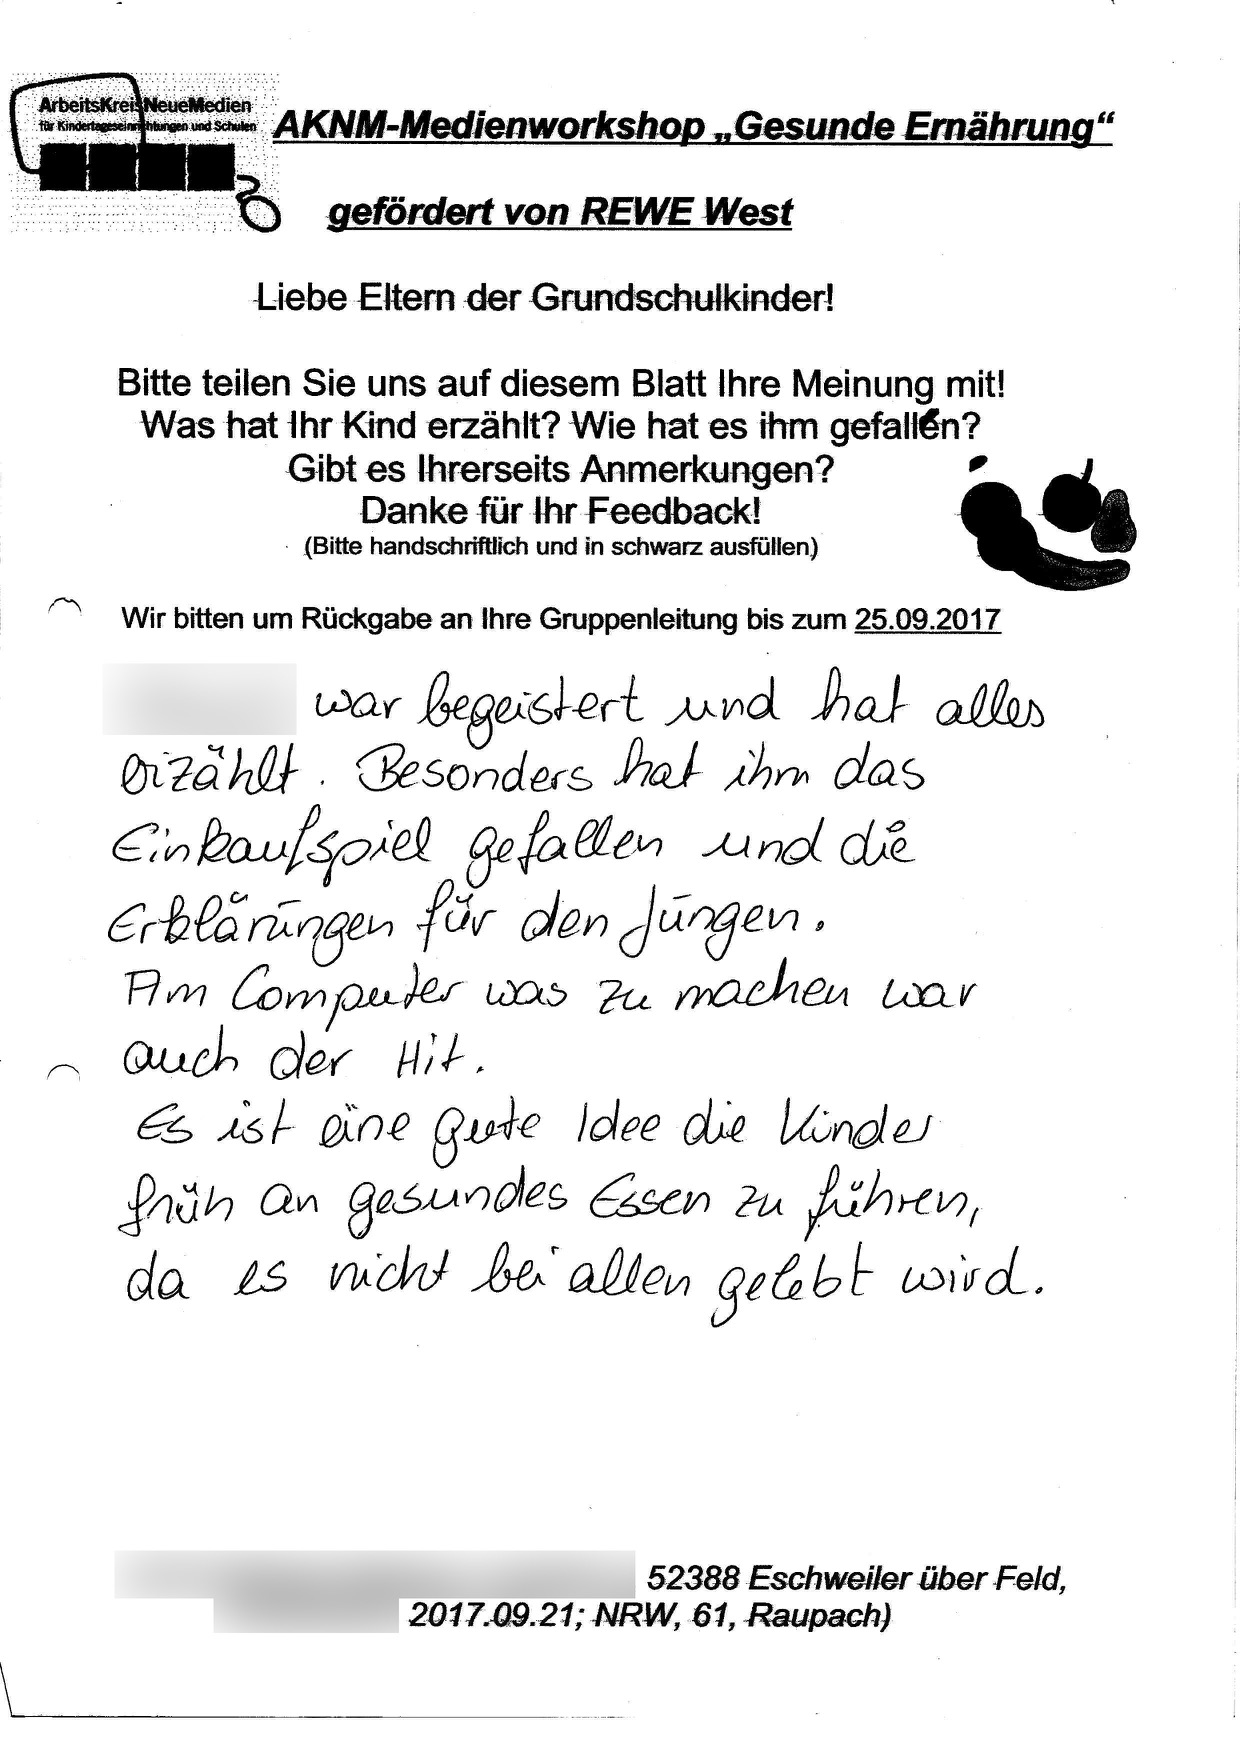 ArbeitsKreisNeueMedien
für Kindertageseinrichtungen und Schulen
AKNM-Medienworkshop „Gesunde Ernährung“
gefördert von REWE West
Liebe Eltern der Grundschulkinder!
Bitte teilen Sie uns auf diesem Blatt Ihre Meinung mit!
Was hat Ihr Kind erzählt? Wie hat es ihm gefallen?
Gibt es Ihrerseits Anmerkungen?
Danke für Ihr Feedback!
(Bitte handschriftlich und in schwarz ausfüllen)
Wir bitten um Rückgabe an Ihre Gruppenleitung bis zum 25.09.2017
war begeistert und hat alles
erzählt. Besonders hat ihm das
Einkaufspiel gefallen und die
Erklärungen für den Jungen.
Am Computer was zu machen war
auch der Hit.
Es ist eine gute Idee die Kinder
früh an gesundes Essen zu führen,
da es nicht bei allen gelebt wird.
52388 Eschweiler über Feld,
2017.09.21; NRW, 61, Raupach)